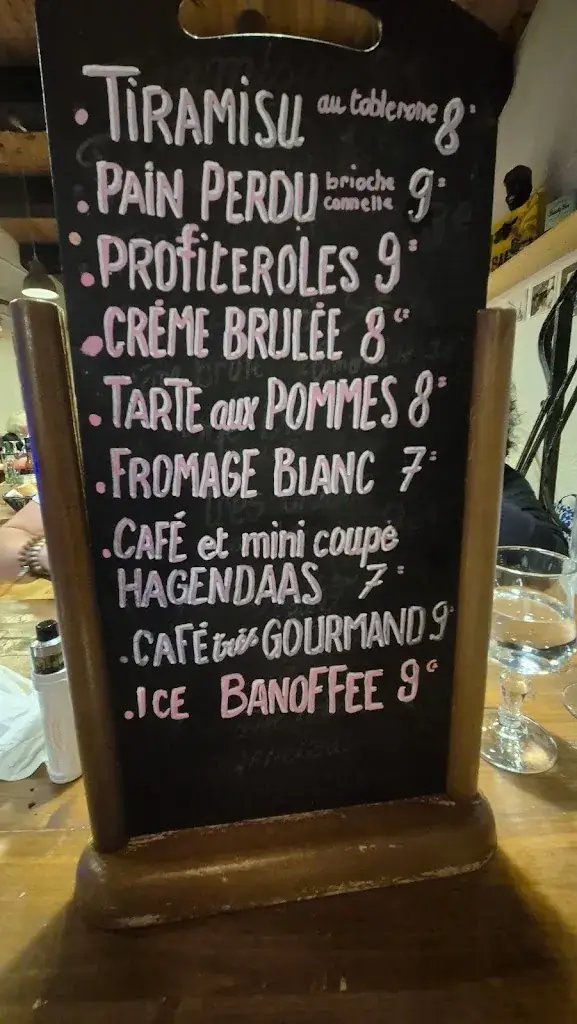 . TIRAMISU au toblerone 8
. PAIN PERDU brioche cannelle 9
. PROFITEROLES 9
. CRÈME BRULÉE 8€
. TARTE aux POMMES 8
. FROMAGE BLANC 7
. CAFÉ et mini coupe
HAGENDAAS 7
. CAFÉ très GOURMAND 9
. ICE BANOFFEE 9€